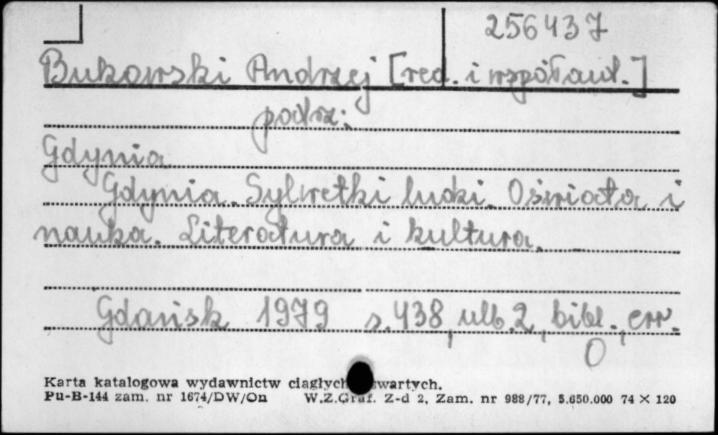 256437
Bukowski Andrzej [red. i współaut.]
podsz:
Gdynia
Gdynia. Sylwetki ludzi. Oświata i
nauka. Literatura i kultura.
Gdańsk 1979 s. 438, ulb. 2, bibl., err.
Karta katalogowa wydawnictw ciągłych zwartych.
Pu-B-144 zam. nr 1674/DW/On W.Z.Graf. Z-d 2, Zam. nr 988/77, 5.650.000 74 × 120